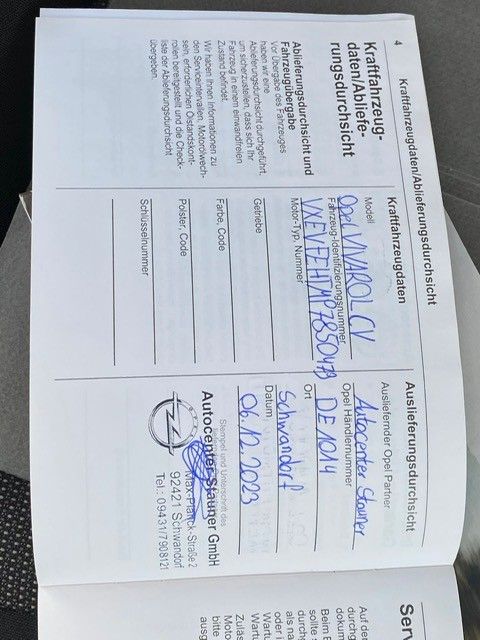 4
Kraftfahrzeugdaten/Ablieferungsdurchsicht
Kraftfahrzeug-
daten/Abliefe-
rungsdurchsicht
Ablieferungsdurchsicht und
Fahrzeugübergabe
Vor Übergabe des Fahrzeuges
haben wir eine
Ablieferungsdurchsicht durchgeführt,
um sicherzustellen, dass sich Ihr
Fahrzeug in einem einwandfreien
Zustand befindet.
Wir haben Ihnen Informationen zu
den Serviceintervallen, Motorölwech-
seln, erforderlichen Ölstandskont-
rollen bereitgestellt und die Check-
liste der Ablieferungsdurchsicht
übergeben.
Kraftfahrzeugdaten
Modell
Opel VIVARO LCV
Fahrzeug-Identifizierungsnummer
Motor-Typ, Nummer
Getriebe
Farbe, Code
Polster, Code
Schlüsselnummer
Auslieferungsdurchsicht
Ausliefernder Opel Partner
Autocenter Stauner
Opel Händlernummer
DE 1014
Ort
Schwandorf
Datum
06.12.2023
Stempel und Unterschrift des
Autocenter Stauner GmbH
Max-Planck-Straße 2
92421 Schwandorf
Tel.: 09431/7908121
Serv
Auf de
durchg
doku
Beim E
sollte
durch
als na
oder l
Wart
Wartu
Zuläs
Moto
bitte
ausg